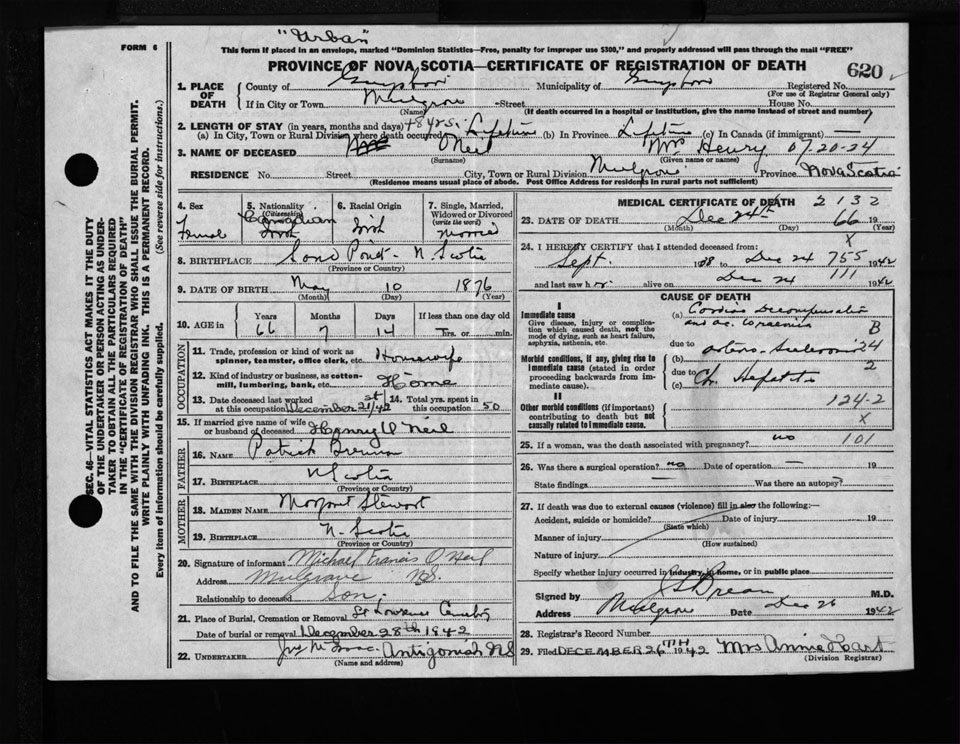 "Urban"
FORM 6
This form if placed in an envelope, marked "Dominion Statistics—Free, penalty for improper use $300," and properly addressed will pass through the mail "FREE"
PROVINCE OF NOVA SCOTIA—CERTIFICATE OF REGISTRATION OF DEATH
620
1. PLACE OF DEATH
County of Municipality of Registered No.
(For use of Registrar General only)
If in City or Town Mulgrave Street House No.
(Name) (If death occurred in a hospital or institution, give the name instead of street and number)
2. LENGTH OF STAY (in years, months and days)
(a) In City, Town or Rural Division where death occurred Lifetime (b) In Province Lifetime (c) In Canada (if immigrant) —
3. NAME OF DECEASED O'Neil Mrs Henry 07-20-24
(Surname) (Given name or names)
RESIDENCE No. Street City, Town or Rural Division Mulgrave Province Nova Scotia
(Residence means usual place of abode. Post Office Address for residents in rural parts not sufficient)
4. Sex
Female
5. Nationality
(Citizenship)
Canadian
6. Racial Origin
Irish
7. Single, Married, Widowed or Divorced
(write the word)
8. BIRTHPLACE Sand Point - N. Scotia
(Province or Country)
9. DATE OF BIRTH May 10 1876
(Month) (Day) (Year)
10. AGE in Years Months Days If less than one day old
66 7 14 hrs. or min.
OCCUPATION
11. Trade, profession or kind of work as spinner, teamster, office clerk, etc. Housewife
12. Kind of industry or business, as cotton-mill, lumbering, bank, etc. Home
13. Date deceased last worked at this occupation December 21st/42
14. Total yrs. spent in this occupation 50
15. If married give name of wife or husband of deceased Henry O'Neil
FATHER
16. NAME Patrick Brennan
17. BIRTHPLACE N Scotia
(Province or Country)
MOTHER
18. MAIDEN NAME Margaret Stewart
19. BIRTHPLACE N. Scotia
(Province or Country)
20. Signature of informant Michael Francis O'Neil
Address Mulgrave N.S.
Relationship to deceased Son
21. Place of Burial, Cremation or Removal St Lawrence Cemetery
Date of burial or removal December 28th 1942
22. UNDERTAKER Antigonish NS
(Name and address)
MEDICAL CERTIFICATE OF DEATH
2132
23. DATE OF DEATH Dec 24th 66 19
(Month) (Day) (Year)
X
24. I HEREBY CERTIFY that I attended deceased from:
Sept. 1938 to Dec 24 755 1942
and last saw her alive on Dec 24 111 1942
CAUSE OF DEATH
I
Immediate cause
Give disease, injury or complication which caused death, not the mode of dying, such as heart failure, asphyxia, asthenia, etc.
(a) Cardiac Decompensation
B
due to
Morbid conditions, if any, giving rise to immediate cause (stated in order proceeding backwards from immediate cause).
(b) 24
due to
2
(c) Ch. Hepatitis
II
Other morbid conditions (if important) contributing to death but not causally related to immediate cause.
124-2
X
25. If a woman, was the death associated with pregnancy? no 101
26. Was there a surgical operation? no Date of operation — 19
State findings — Was there an autopsy?
27. If death was due to external causes (violence) fill in also the following:
Accident, suicide or homicide? Date of injury 19
(State which)
Manner of injury
(How sustained)
Nature of injury
Specify whether injury occurred in industry, in home, or in public place
Signed by M.D.
Address Mulgrave Date Dec 26 1942
28. Registrar's Record Number
29. Filed DECEMBER 26TH 1942 Mrs Annie Hart
(Division Registrar)
SEC. 46—VITAL STATISTICS ACT MAKES IT THE DUTY
OF THE UNDERTAKER OR PERSON ACTING AS UNDER-
TAKER TO OBTAIN ALL THE PARTICULARS REQUIRED
IN THE "CERTIFICATE OF REGISTRATION OF DEATH"
AND TO FILE THE SAME WITH THE DIVISION REGISTRAR WHO SHALL ISSUE THE BURIAL PERMIT.
WRITE PLAINLY WITH UNFADING INK. THIS IS A PERMANENT RECORD.
Every item of information should be carefully supplied. (See reverse side for instructions.)